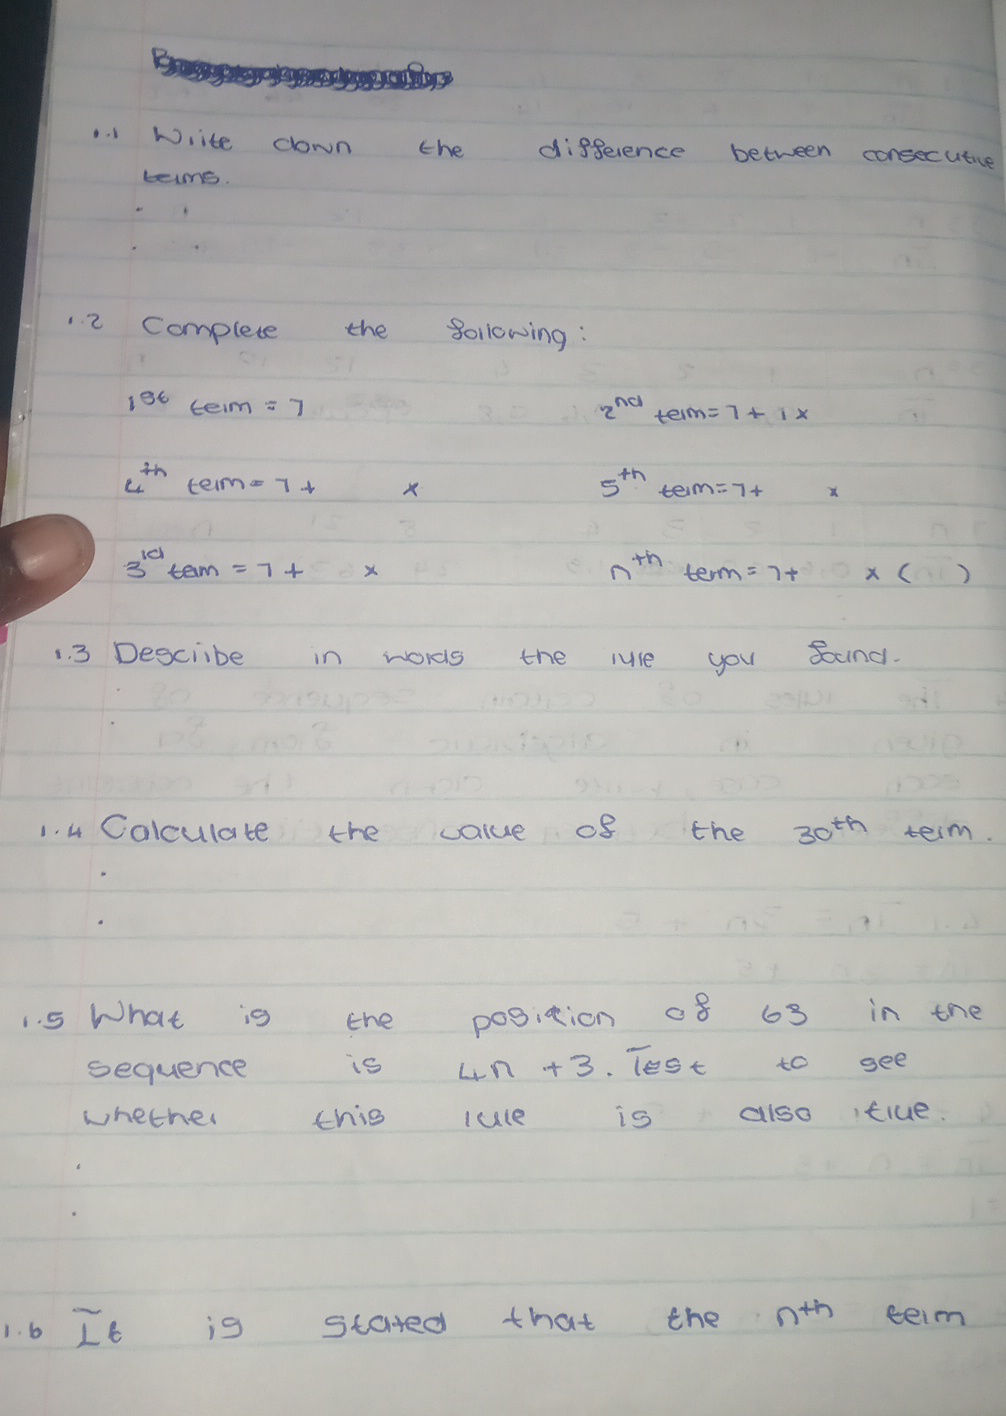 1.1 Write down the difference between consecutive
terms.
1.2 Complete the following:
1st term = 7 2nd term = 7 + 1 x
4th term = 7 + x 5th term = 7 + x
3rd term = 7 + x nth term = 7 + x ( )
1.3 Describe in words the rule you found.
1.4 Calculate the value of the 30th term.
1.5 What is the position of 63 in the
sequence is 4n + 3. Test to see
whether this rule is also true.
1.6 It is stated that the nth term